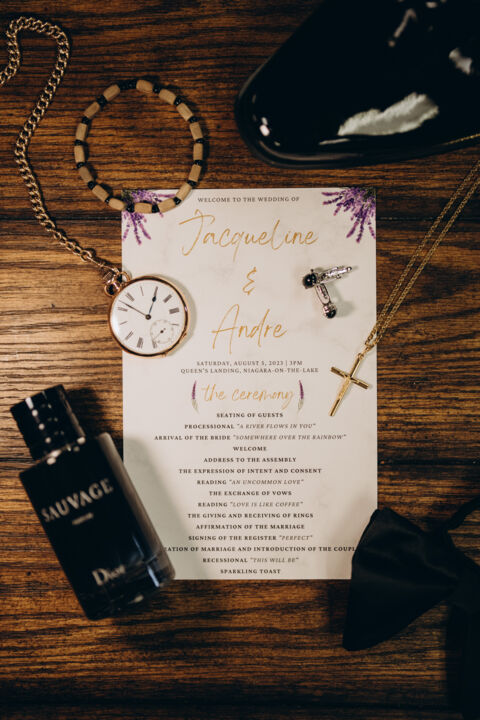 WELCOME TO THE WEDDING OF
Jacqueline
&
Andre
SATURDAY, AUGUST 5, 2023 | 3PM
QUEEN'S LANDING, NIAGARA-ON-THE-LAKE
the ceremony
SEATING OF GUESTS
PROCESSIONAL "A RIVER FLOWS IN YOU"
ARRIVAL OF THE BRIDE "SOMEWHERE OVER THE RAINBOW"
WELCOME
ADDRESS TO THE ASSEMBLY
THE EXPRESSION OF INTENT AND CONSENT
READING "AN UNCOMMON LOVE"
THE EXCHANGE OF VOWS
READING "LOVE IS LIKE COFFEE"
THE GIVING AND RECEIVING OF RINGS
AFFIRMATION OF THE MARRIAGE
SIGNING OF THE REGISTER "PERFECT"
ATION OF MARRIAGE AND INTRODUCTION OF THE COUPL
RECESSIONAL "THIS WILL BE"
SPARKLING TOAST
SAUVAGE
PARFUM
Dior